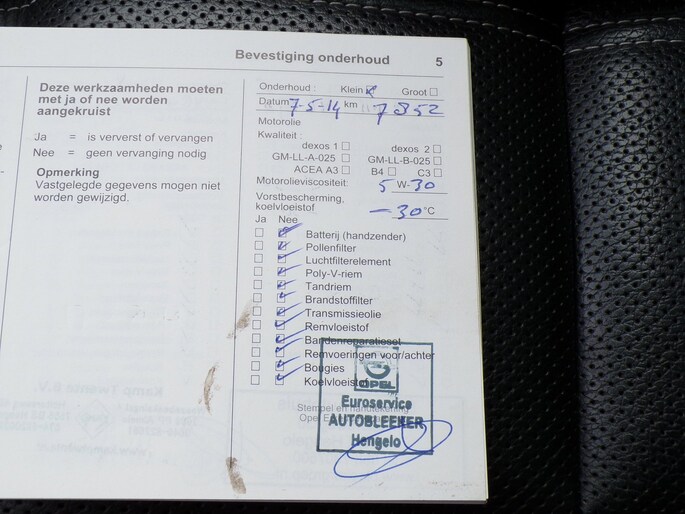 Bevestiging onderhoud 5
Deze werkzaamheden moeten
met ja of nee worden
aangekruist
Ja = is ververst of vervangen
Nee = geen vervanging nodig
Opmerking
Vastgelegde gegevens mogen niet
worden gewijzigd.
Onderhoud : Klein Groot
Datum 7-5-14 km 7852
Motorolie
Kwaliteit :
dexos 1 dexos 2
GM-LL-A-025 GM-LL-B-025
ACEA A3 B4 C3
Motorolieviscositeit: 5 W-30
Vorstbescherming,
koelvloeistof -30 °C
Ja Nee
Batterij (handzender)
Pollenfilter
Luchtfilterelement
Poly-V-riem
Tandriem
Brandstoffilter
Transmissieolie
Remvloeistof
Bandenreparatieset
Remvoeringen voor/achter
Bougies
Koelvloeistof
Stempel en handtekening
Opel
OPEL
Euroservice
AUTOBLEEKER
Hengelo